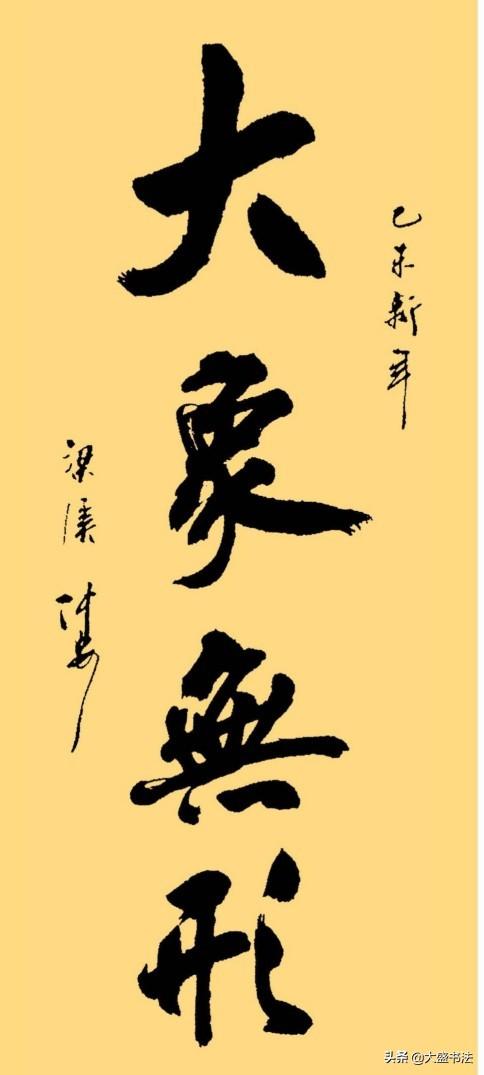 乙未新年
大象無形
梁溪
头条 @大盛书法